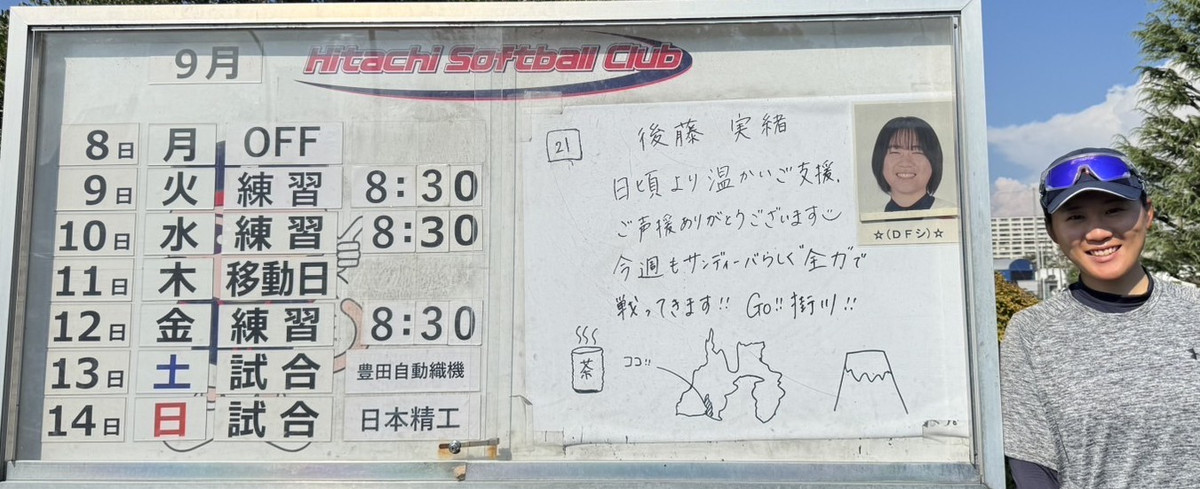 9月
Hitachi Softball Club
8日 月 OFF
9日 火 練習 8:30
10日 水 練習 8:30
11日 木 移動日
12日 金 練習 8:30
13日 土 試合 豊田自動織機
14日 日 試合 日本精工
21
後藤 実緒
日頃より温かいご支援、
ご声援ありがとうございます
今週もサンディーバらしく"全力"で
戦ってきます!! Go!!掛川!!
茶
ココ!!
☆(DFシ)☆